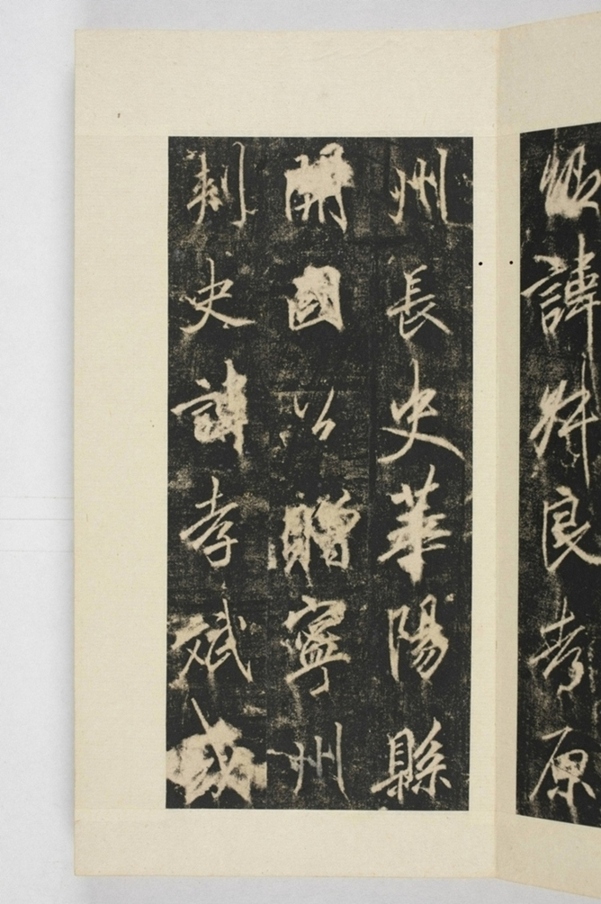 諱叔良考原
州長史華陽縣
開國公贈寧州
刺史諱孝斌或